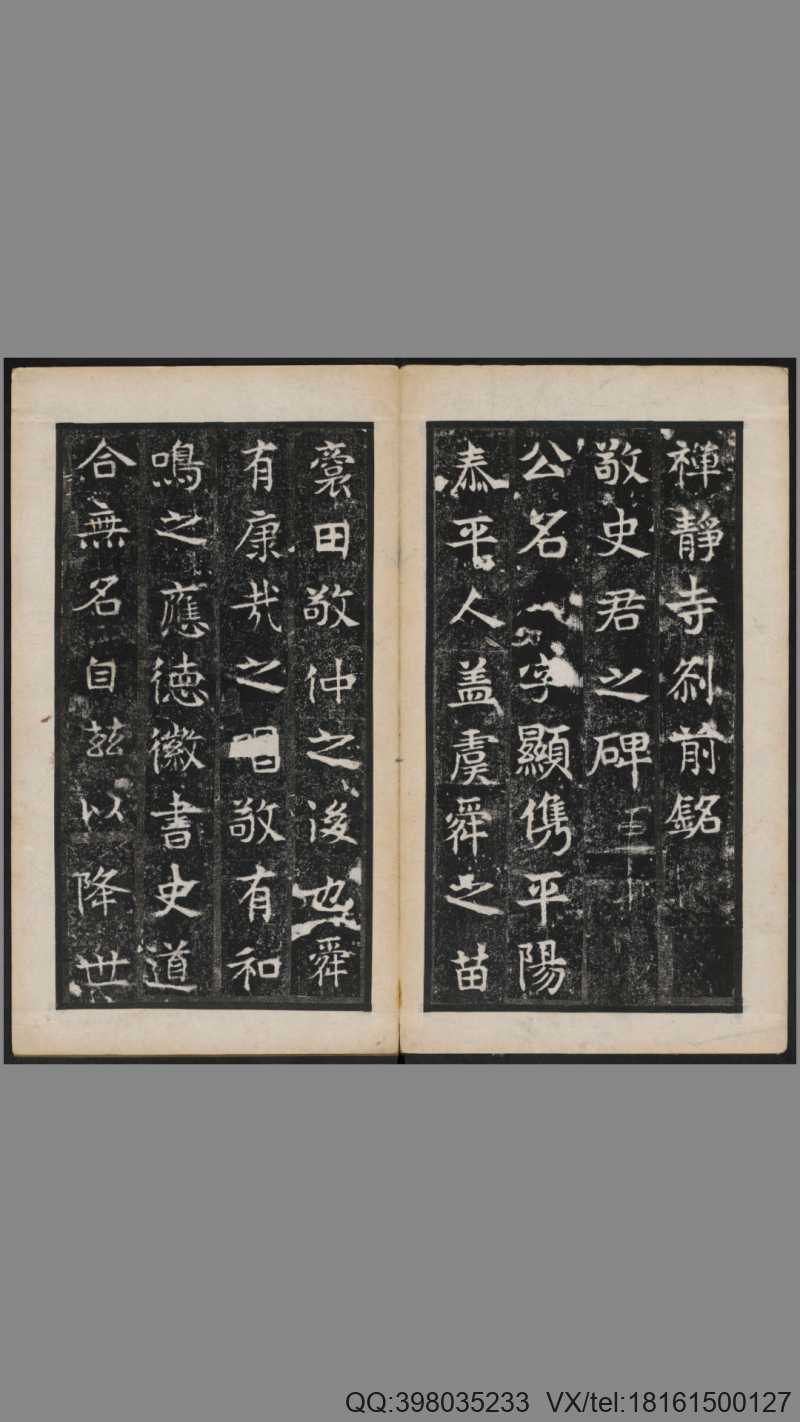 禪靜寺刹前銘
敬史君之碑
公名字顯儁平陽
泰平人盖虞舜之苗
裔田敬仲之後也舜
有康哉之唱敬有和
鳴之應徳徽書史道
合無名自茲以降世
QQ:398035233 VX/tel:18161500127